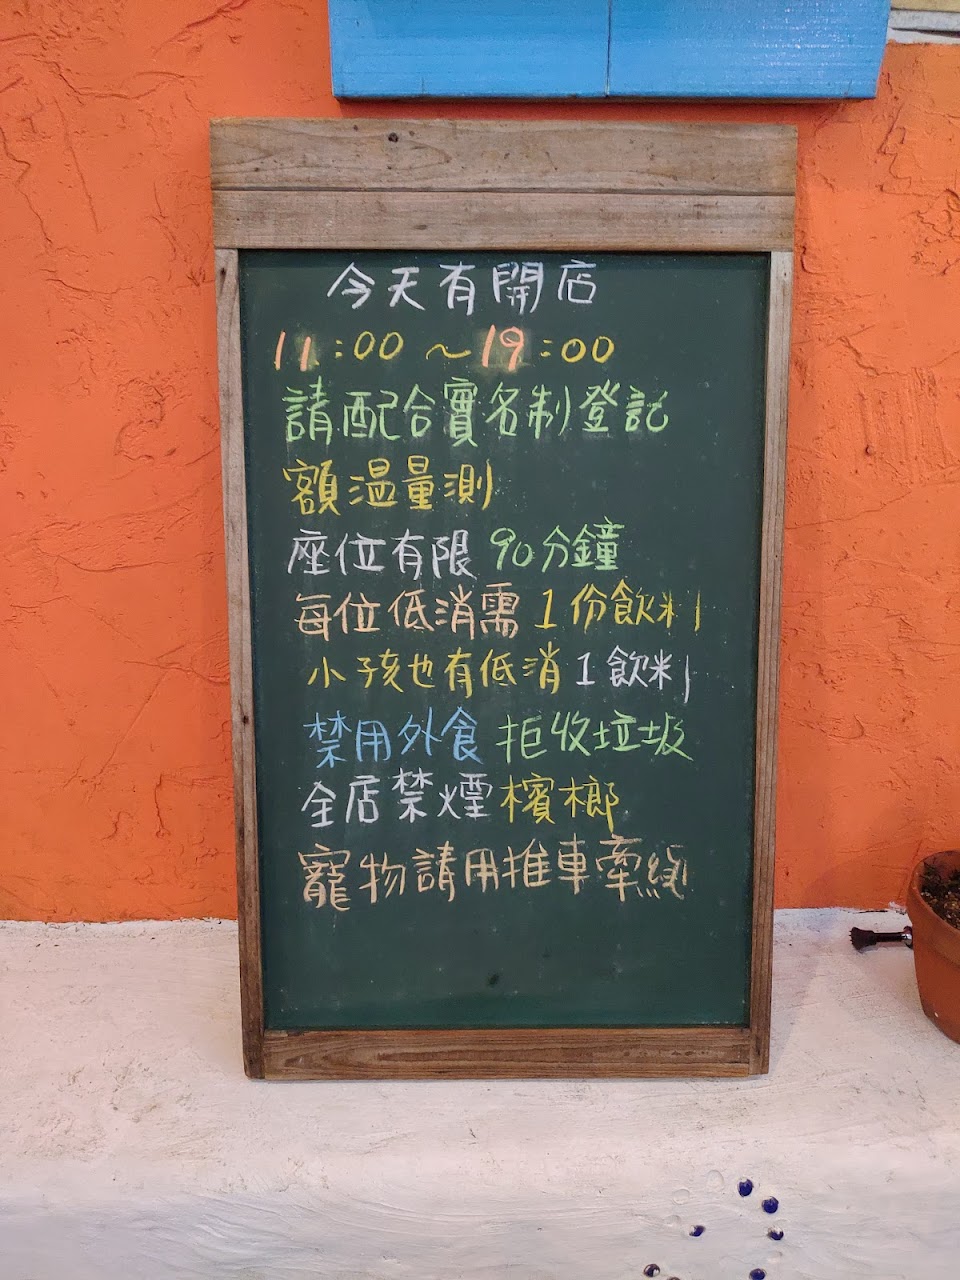 今天有開店
11:00～19:00
請配合實名制登記
額温量測
座位有限 90分鐘
每位低消需1份飲料
小孩也有低消1飲料
禁用外食 拒收垃圾
全店禁煙檳榔
寵物請用推車牽繩